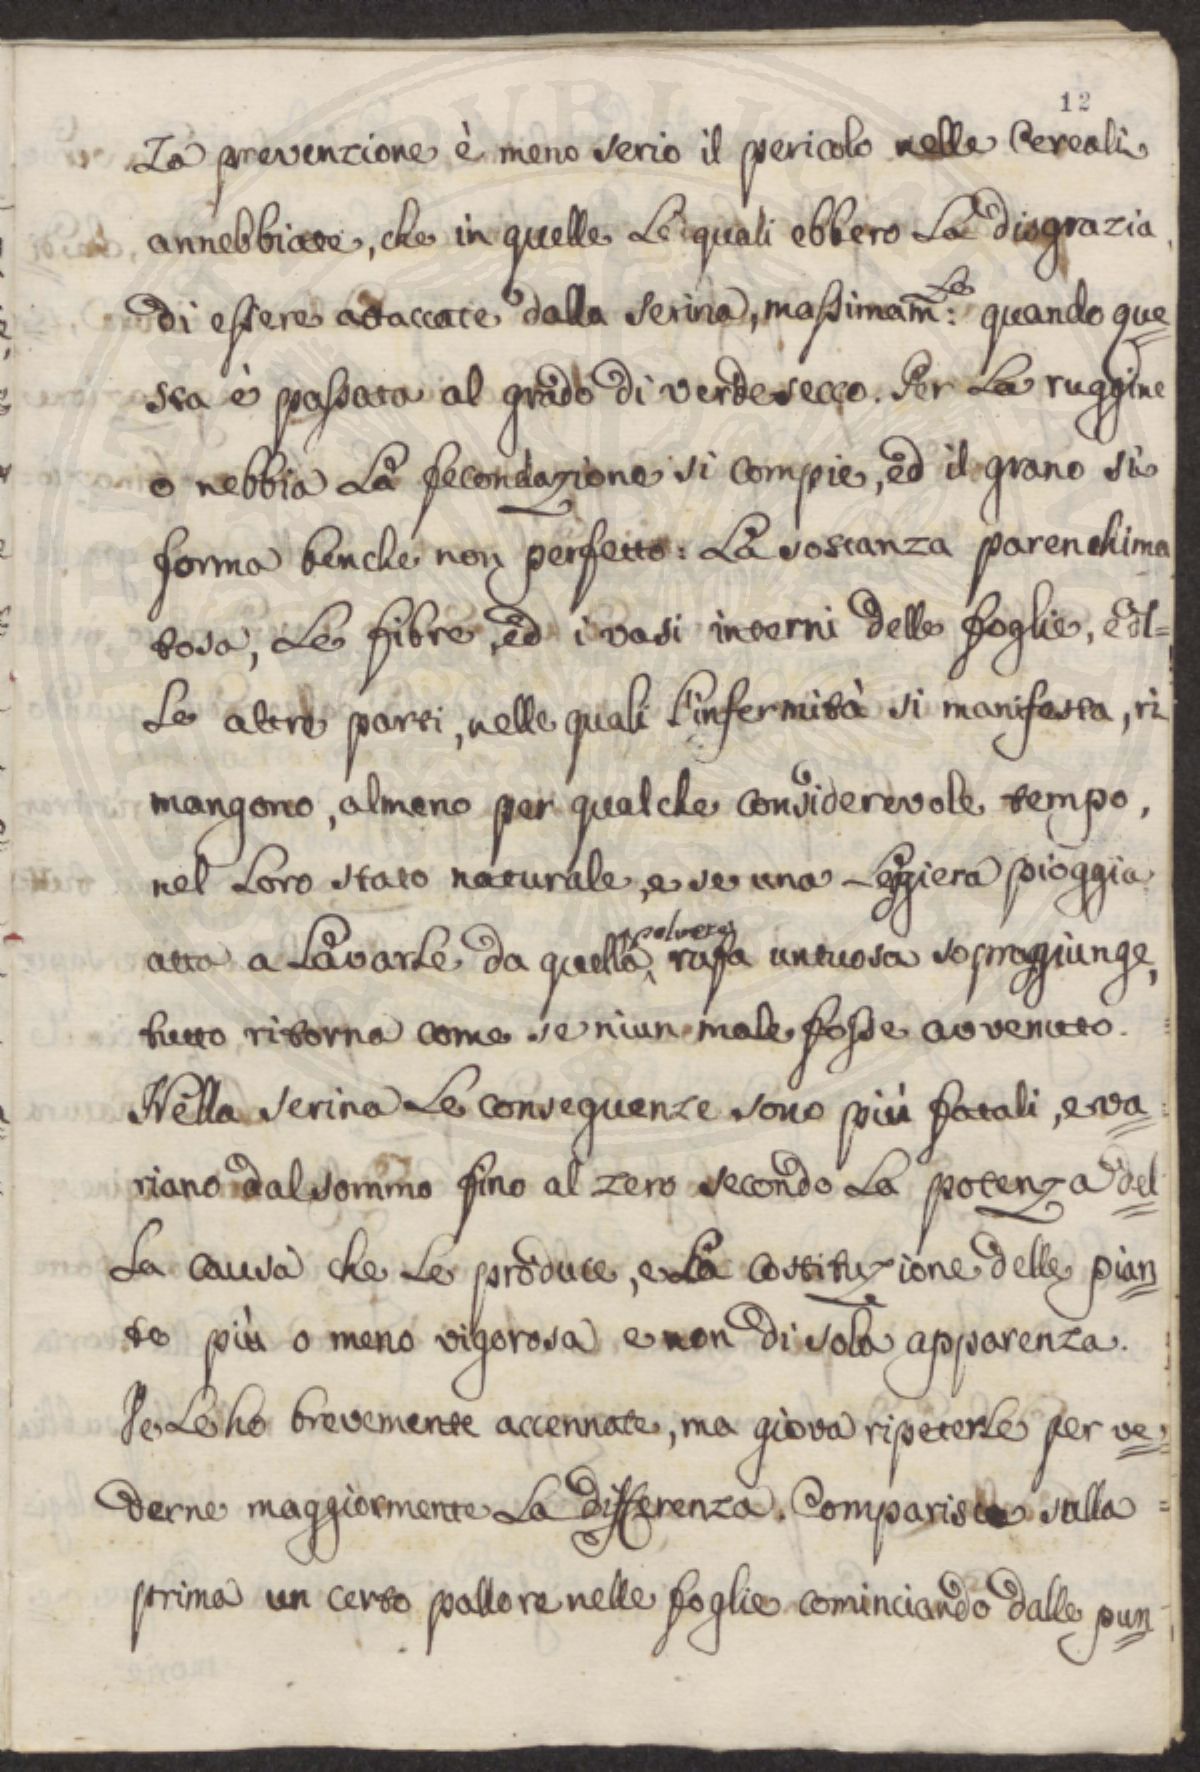 12
La prevenzione è meno serio il pericolo nelle Cereali
annebbiate, che in quelle Le quali ebbero La disgrazia
di essere attaccate dalla serina, massimam:te quando que
sta è passata al grado di verdesecco. Per La ruggine
o nebbia La fecondazione si compie, ed il grano si
forma benche non perfetto: La sostanza parenchima
tosa, Le fibre, ed i vasi interni delle foglie, e dl=
Le altre parti, nelle quali L'infermità si manifesta, ri
mangono, almeno per qualche considerevole tempo,
nel Loro stato naturale, e se una Leggiera pioggia
polvere
atta a Lavarle da quella rafa untuosa sopraggiunge,
tutto ritorna come se niun male fosse avvenuto.
Nella serina Le conseguenze sono più fatali, e va
riano dal sommo fino al zero secondo La potenza del
La causa che Le produce, e La costituzione delle pian
te più o meno vigorosa e non di sola apparenza.
Io Le ho brevemente accennate, ma giova ripeterle per ve
derne maggiormente La differenza. Comparisce sulla
prima un certo pallore nelle foglie cominciando dalle pun